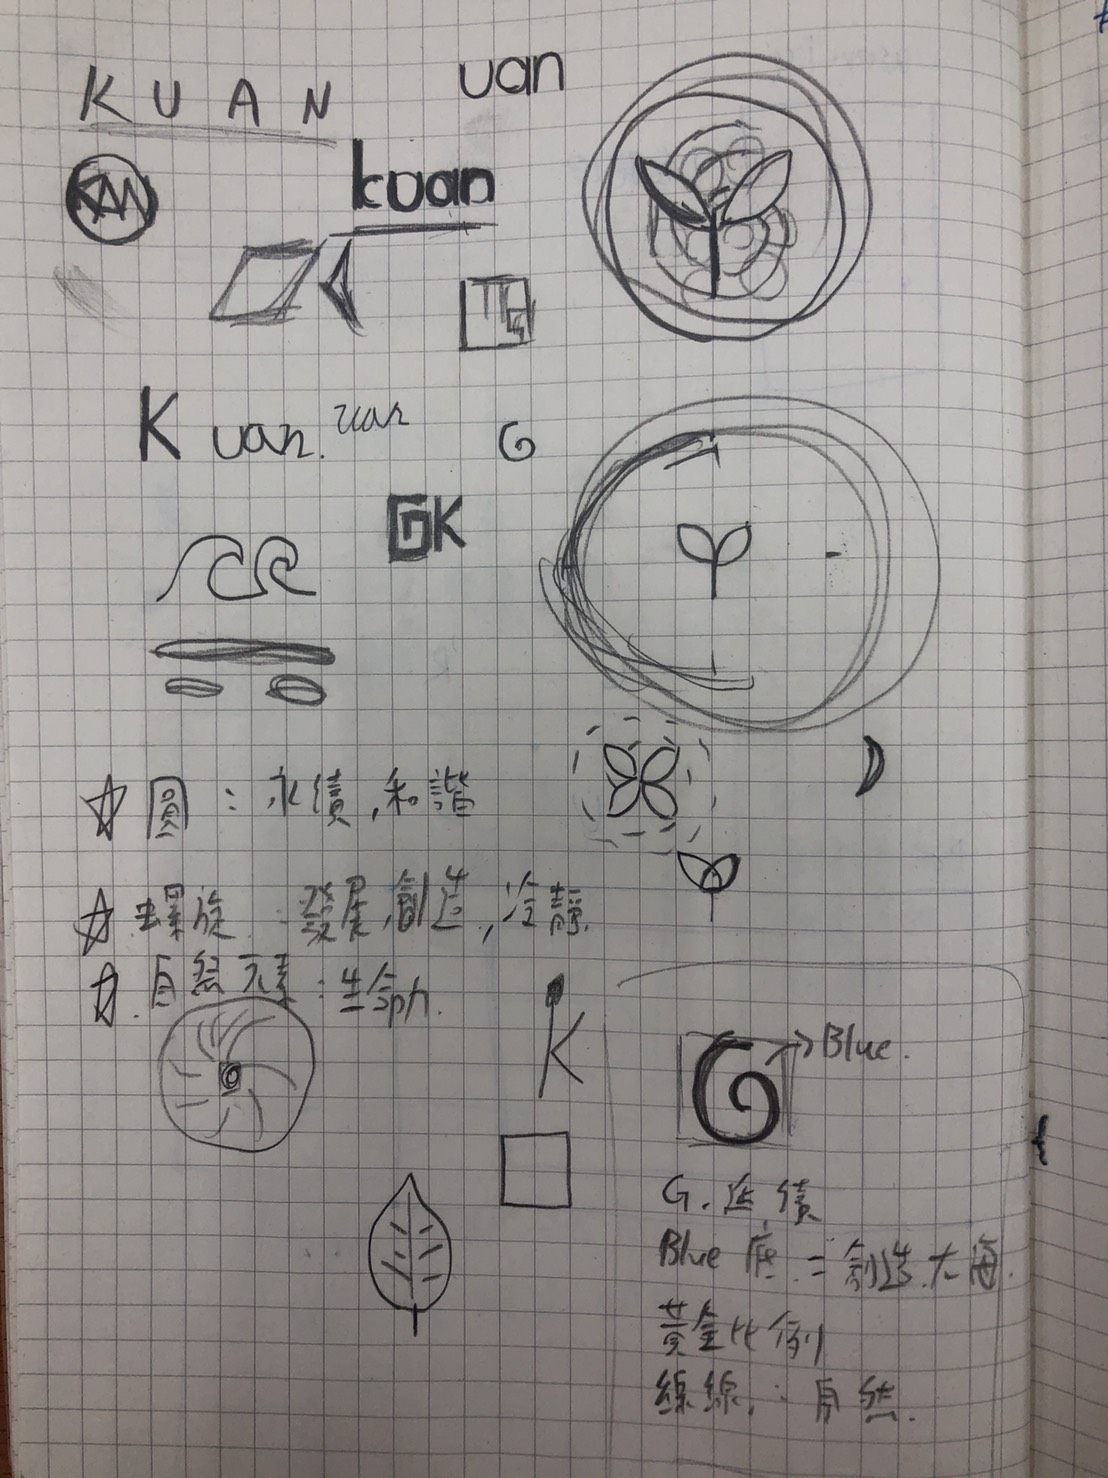 KUAN
uan
KAN
kuan
K uan.
uan
G
GK
☆ 圓:永續,和諧
☆ 螺旋:發展,創造,冷靜.
☆ 自然元素:生命力.
K
G → Blue.
G.延續
Blue 底 = 創造.大海.
黃金比例
綠線:自然.